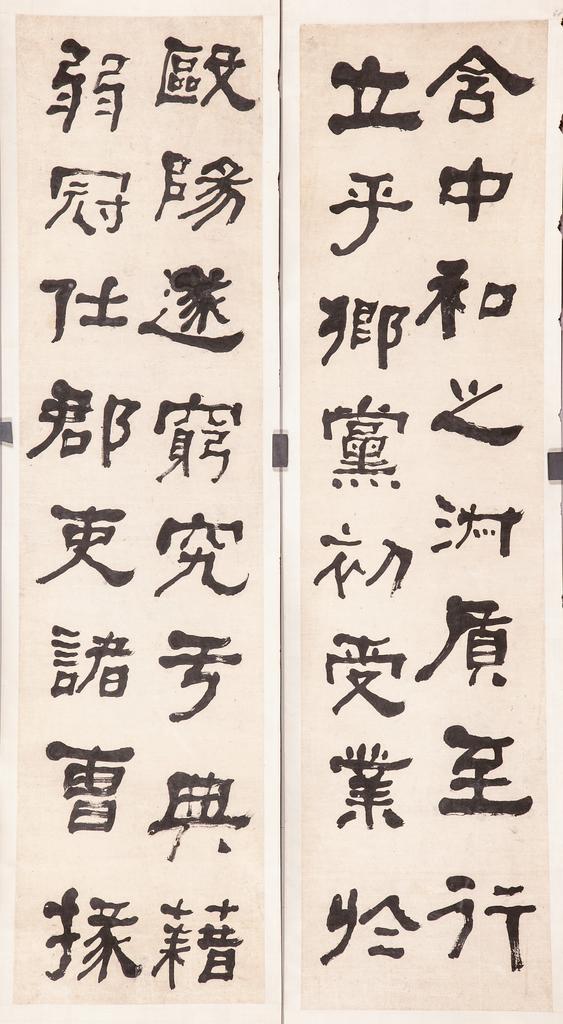 含中和之淑質至行
立乎鄉黨初受業於
毆陽遂窮究亏典藉
弱冠仕郡吏諸曹掾